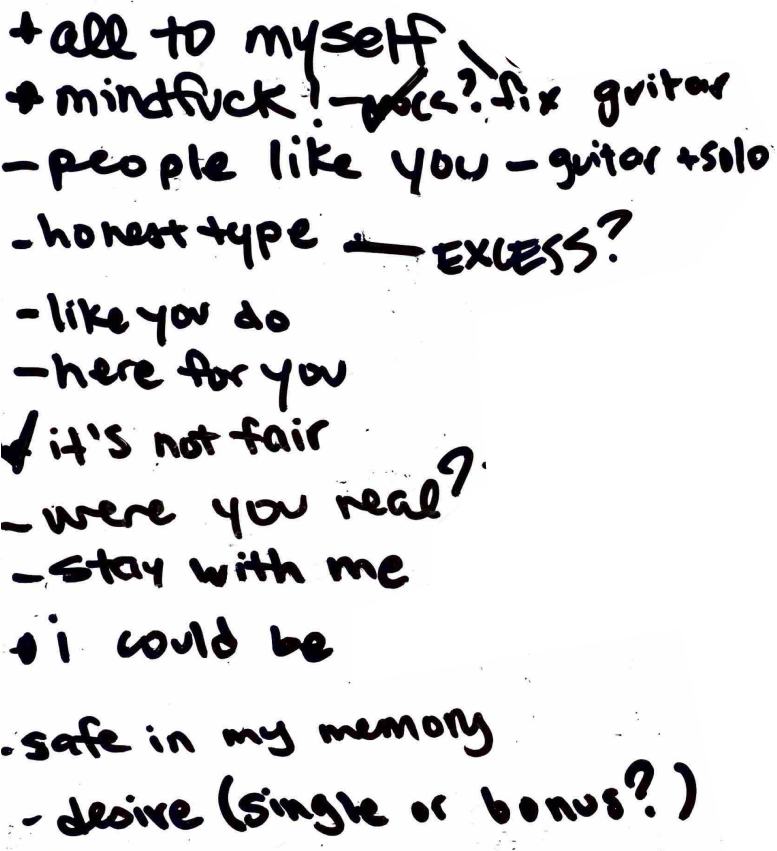 + all to myself
+ mindfuck! - vocs? fix guitar
- people like you - guitar + solo
- honest type — EXCESS?
- like you do
- here for you
✓ it's not fair
- were you real?
- stay with me
• i could be
• safe in my memory
- desire (single or bonus?)